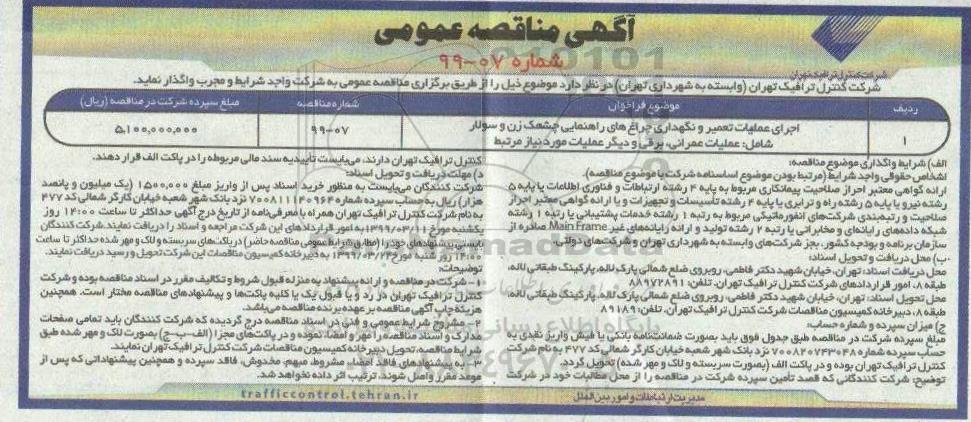 آگهی مناقصه عمومی
شماره ۰۷-۹۹
شرکت کنترل ترافیک تهران
شرکت کنترل ترافیک تهران (وابسته به شهرداری تهران) در نظر دارد موضوع ذیل را از طریق برگزاری مناقصه عمومی به شرکت واجد شرایط و مجرب واگذار نماید.
ردیف موضوع فراخوان شماره مناقصه مبلغ سپرده شرکت در مناقصه (ریال)
۱ اجرای عملیات تعمیر و نگهداری چراغ های راهنمایی چشمک زن و سولار ۹۹-۰۷ ۵,۱۰۰,۰۰۰,۰۰۰
شامل: عملیات عمرانی، برقی و دیگر عملیات مورد نیاز مرتبط
الف) شرایط واگذاری موضوع مناقصه:
اشخاص حقوقی واجد شرایط (مرتبط بودن موضوع اساسنامه شرکت با موضوع مناقصه).
ارائه گواهی معتبر احراز صلاحیت پیمانکاری مربوط به پایه ۴ رشته ارتباطات و فناوری اطلاعات یا پایه ۵
رشته نیرو یا پایه ۵ رشته راه و ترابری یا پایه ۴ رشته تأسیسات و تجهیزات و یا ارائه گواهی معتبر احراز
صلاحیت و رتبه‌بندی شرکت‌های انفورماتیکی مربوط به رتبه ۱ رشته خدمات پشتیبانی یا رتبه ۱ رشته
شبکه داده‌های رایانه‌ای و مخابراتی یا رتبه ۲ رشته تولید و ارائه رایانه‌های غیر Main Frame صادره از
سازمان برنامه و بودجه کشور، بجز شرکت‌های وابسته به شهرداری تهران و شرکت‌های دولتی.
ب) محل دریافت و تحویل اسناد:
محل دریافت اسناد: تهران، خیابان شهید دکتر فاطمی، روبروی ضلع شمالی پارک لاله، پارکینگ طبقاتی لاله،
طبقه ۸، امور قراردادهای شرکت کنترل ترافیک تهران. تلفن: ۸۸۹۷۲۸۹۱
محل تحویل اسناد: تهران، خیابان شهید دکتر فاطمی، روبروی ضلع شمالی پارک لاله، پارکینگ طبقاتی لاله،
طبقه ۸، دبیرخانه کمیسیون مناقصات شرکت کنترل ترافیک تهران. تلفن: ۸۹۱۸۹
ج) میزان سپرده و شماره حساب:
مبلغ سپرده شرکت در مناقصه طبق جدول فوق باید بصورت ضمانتنامه بانکی یا فیش واریز نقدی به
حساب سپرده شماره ۷۰۰۸۲۰۷۴۳۰۴۸ نزد بانک شهر شعبه خیابان کارگر شمالی کد ۴۷۷ به نام شرکت
کنترل ترافیک تهران بوده و در پاکت الف (بصورت سربسته و لاک و مهر شده) تحویل گردد.
توضیح: شرکت کنندگانی که قصد تأمین سپرده شرکت در مناقصه را از محل مطالبات خود در شرکت
کنترل ترافیک تهران دارند، می‌بایست تأییدیه سند مالی مربوطه را در پاکت الف قرار دهند.
د) مهلت دریافت و تحویل اسناد:
شرکت کنندگان می‌بایست به منظور خرید اسناد پس از واریز مبلغ ۱,۵۰۰,۰۰۰ (یک میلیون و پانصد
هزار) ریال به حساب سپرده شماره ۷۰۰۸۱۱۱۴۰۹۶۴ نزد بانک شهر شعبه خیابان کارگر شمالی کد ۴۷۷
به نام شرکت کنترل ترافیک تهران همراه با معرفی‌نامه از تاریخ درج آگهی حداکثر تا ساعت ۱۴:۰۰ روز
یکشنبه مورخ ۱۳۹۹/۰۳/۱۱ به امور قراردادهای این شرکت مراجعه و اسناد را دریافت نمایند. شرکت کنندگان
بایستی پیشنهادهای خود را (مطابق شرایط عمومی مناقصه حاضر) در پاکت‌های سربسته و لاک و مهر شده حداکثر تا ساعت
۱۴:۰۰ روز شنبه مورخ ۱۳۹۹/۰۳/۲۴ به دبیرخانه کمیسیون مناقصات این شرکت تحویل و رسید دریافت نمایند.
توضیحات:
۱- شرکت در مناقصه و ارائه پیشنهاد به منزله قبول شروط و تکالیف مقرر در اسناد مناقصه بوده و شرکت
کنترل ترافیک تهران در رد و یا قبول یک یا کلیه پاکت‌ها و پیشنهادهای مناقصه مختار است. همچنین
هزینه چاپ آگهی مناقصه بر عهده برنده مناقصه می‌باشد.
۲- مشروح شرایط عمومی و فنی در اسناد مناقصه درج گردیده که شرکت کنندگان باید تمامی صفحات
مدارک و اسناد مناقصه را مهر و امضاء نموده و در پاکت‌های مجزا (الف-ب-ج) بصورت لاک و مهر شده طبق
شرایط مناقصه، تحویل دبیرخانه کمیسیون مناقصات شرکت کنترل ترافیک تهران نمایند.
۳- به پیشنهادهای فاقد امضاء، مشروط، مبهم، مخدوش، فاقد سپرده و همچنین پیشنهاداتی که پس از
موعد مقرر واصل شوند، ترتیب اثر داده نخواهد شد.
مدیریت ارتباطات و امور بین الملل
trafficcontrol.tehran.ir